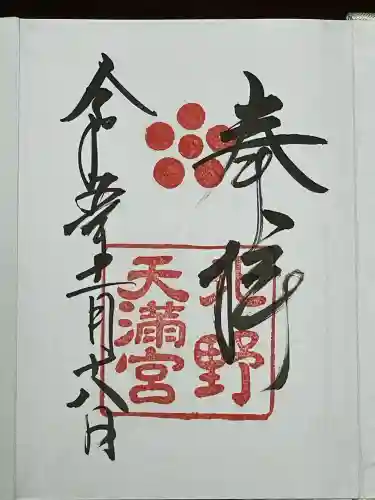 奉拝
北野
天満宮
令和五年十一月十八日